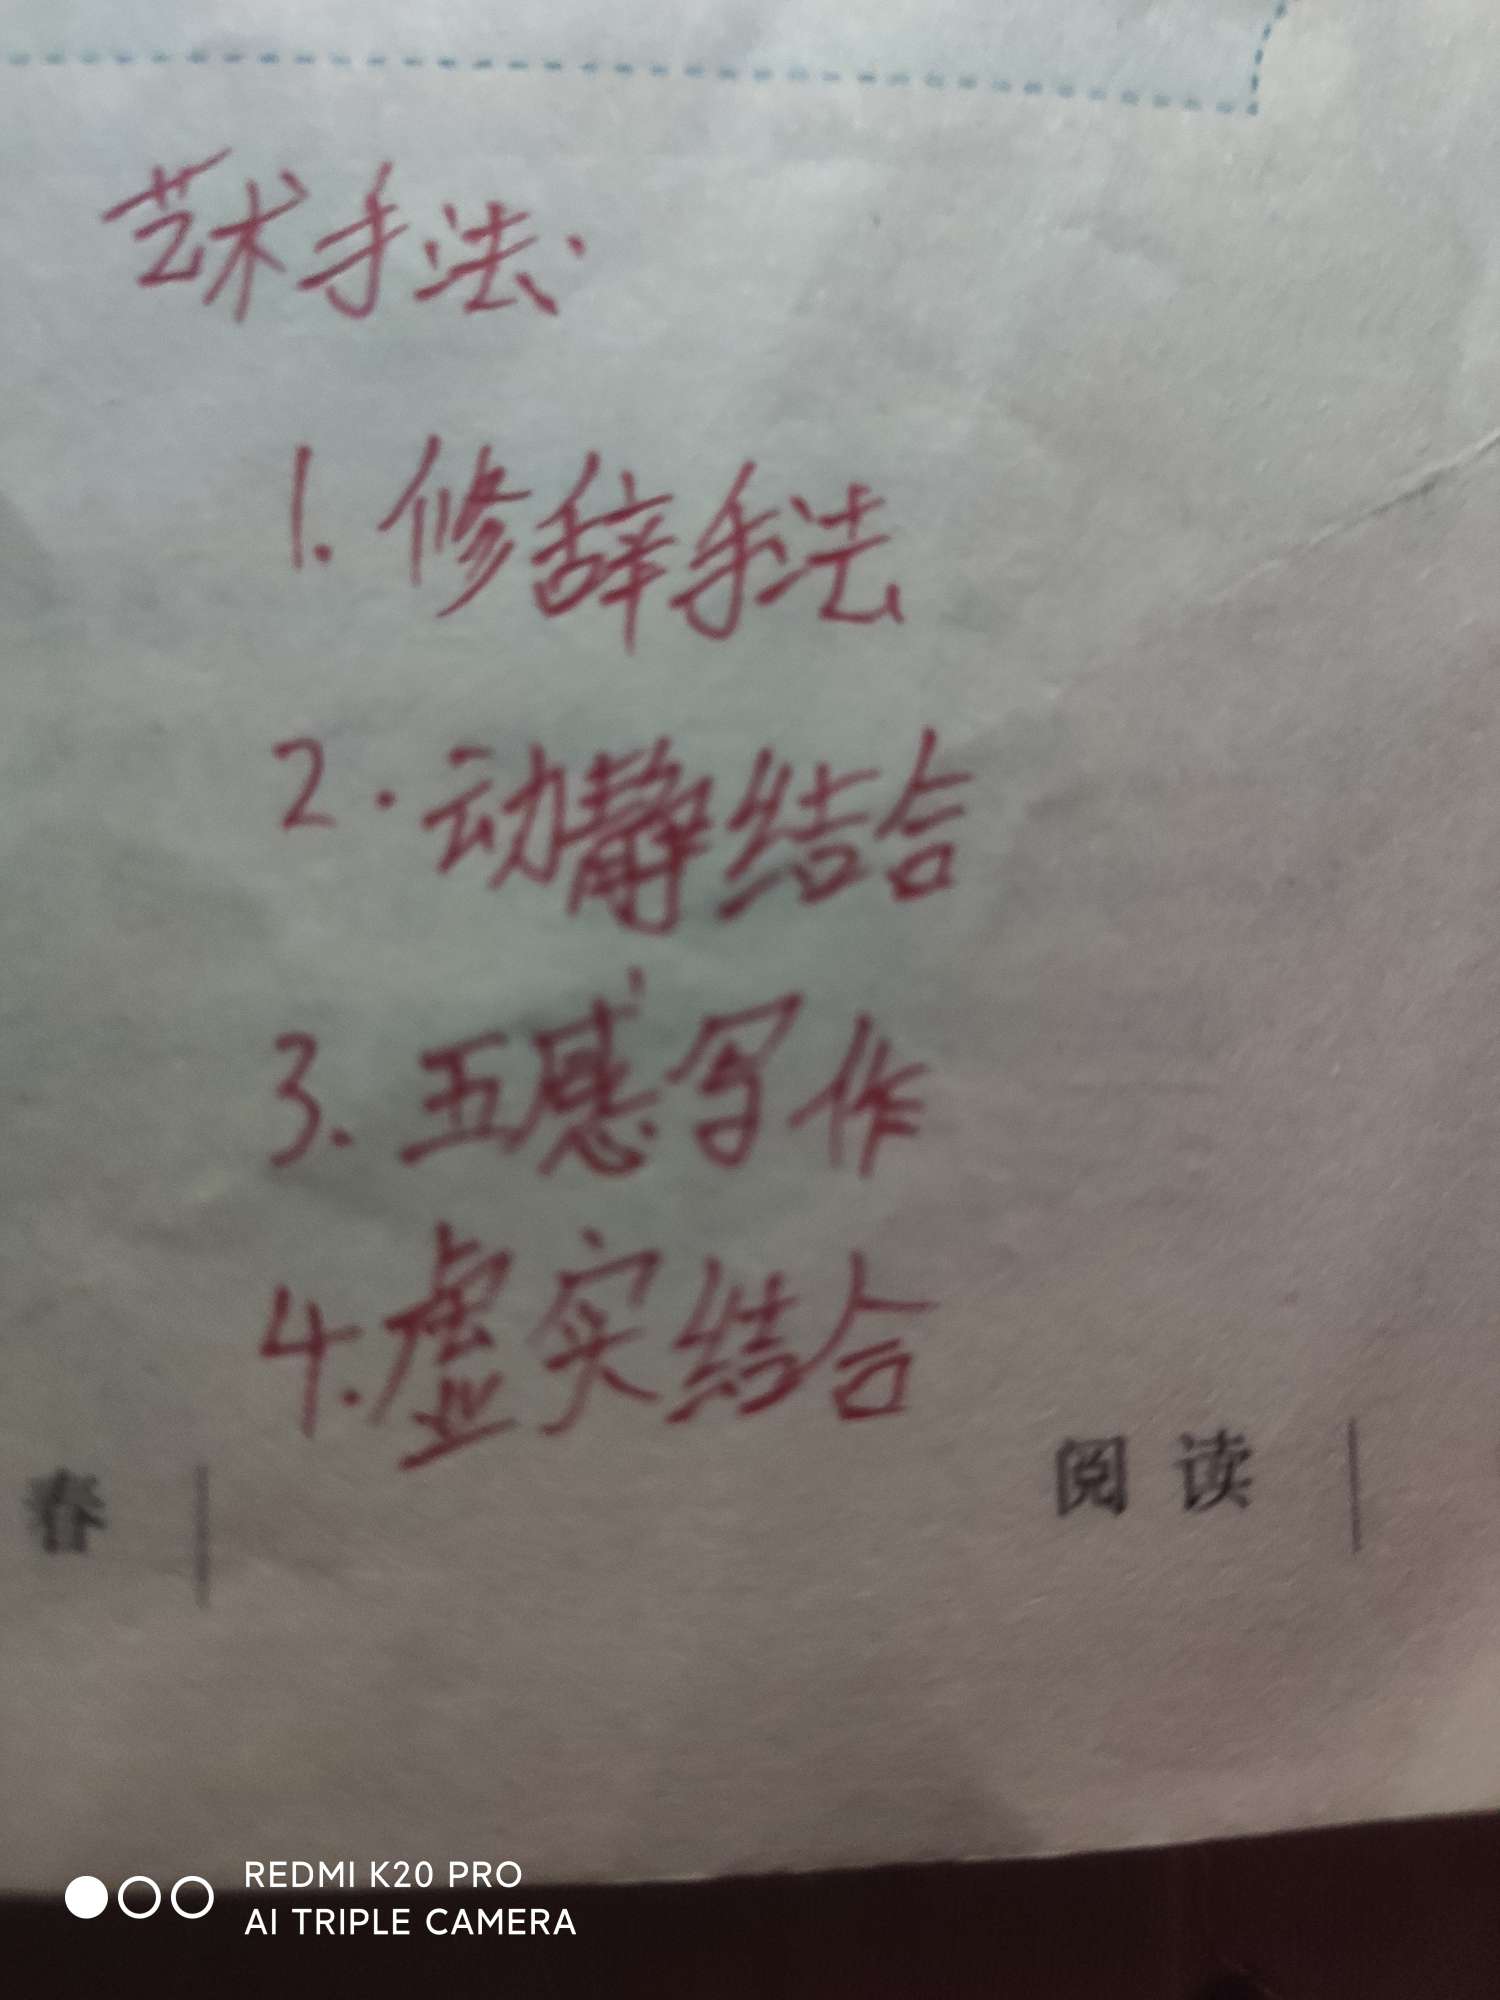 艺术手法:
1.修辞手法
2.动静结合
3.五感写作
4.虚实结合
春
阅读
REDMI K20 PRO
AI TRIPLE CAMERA